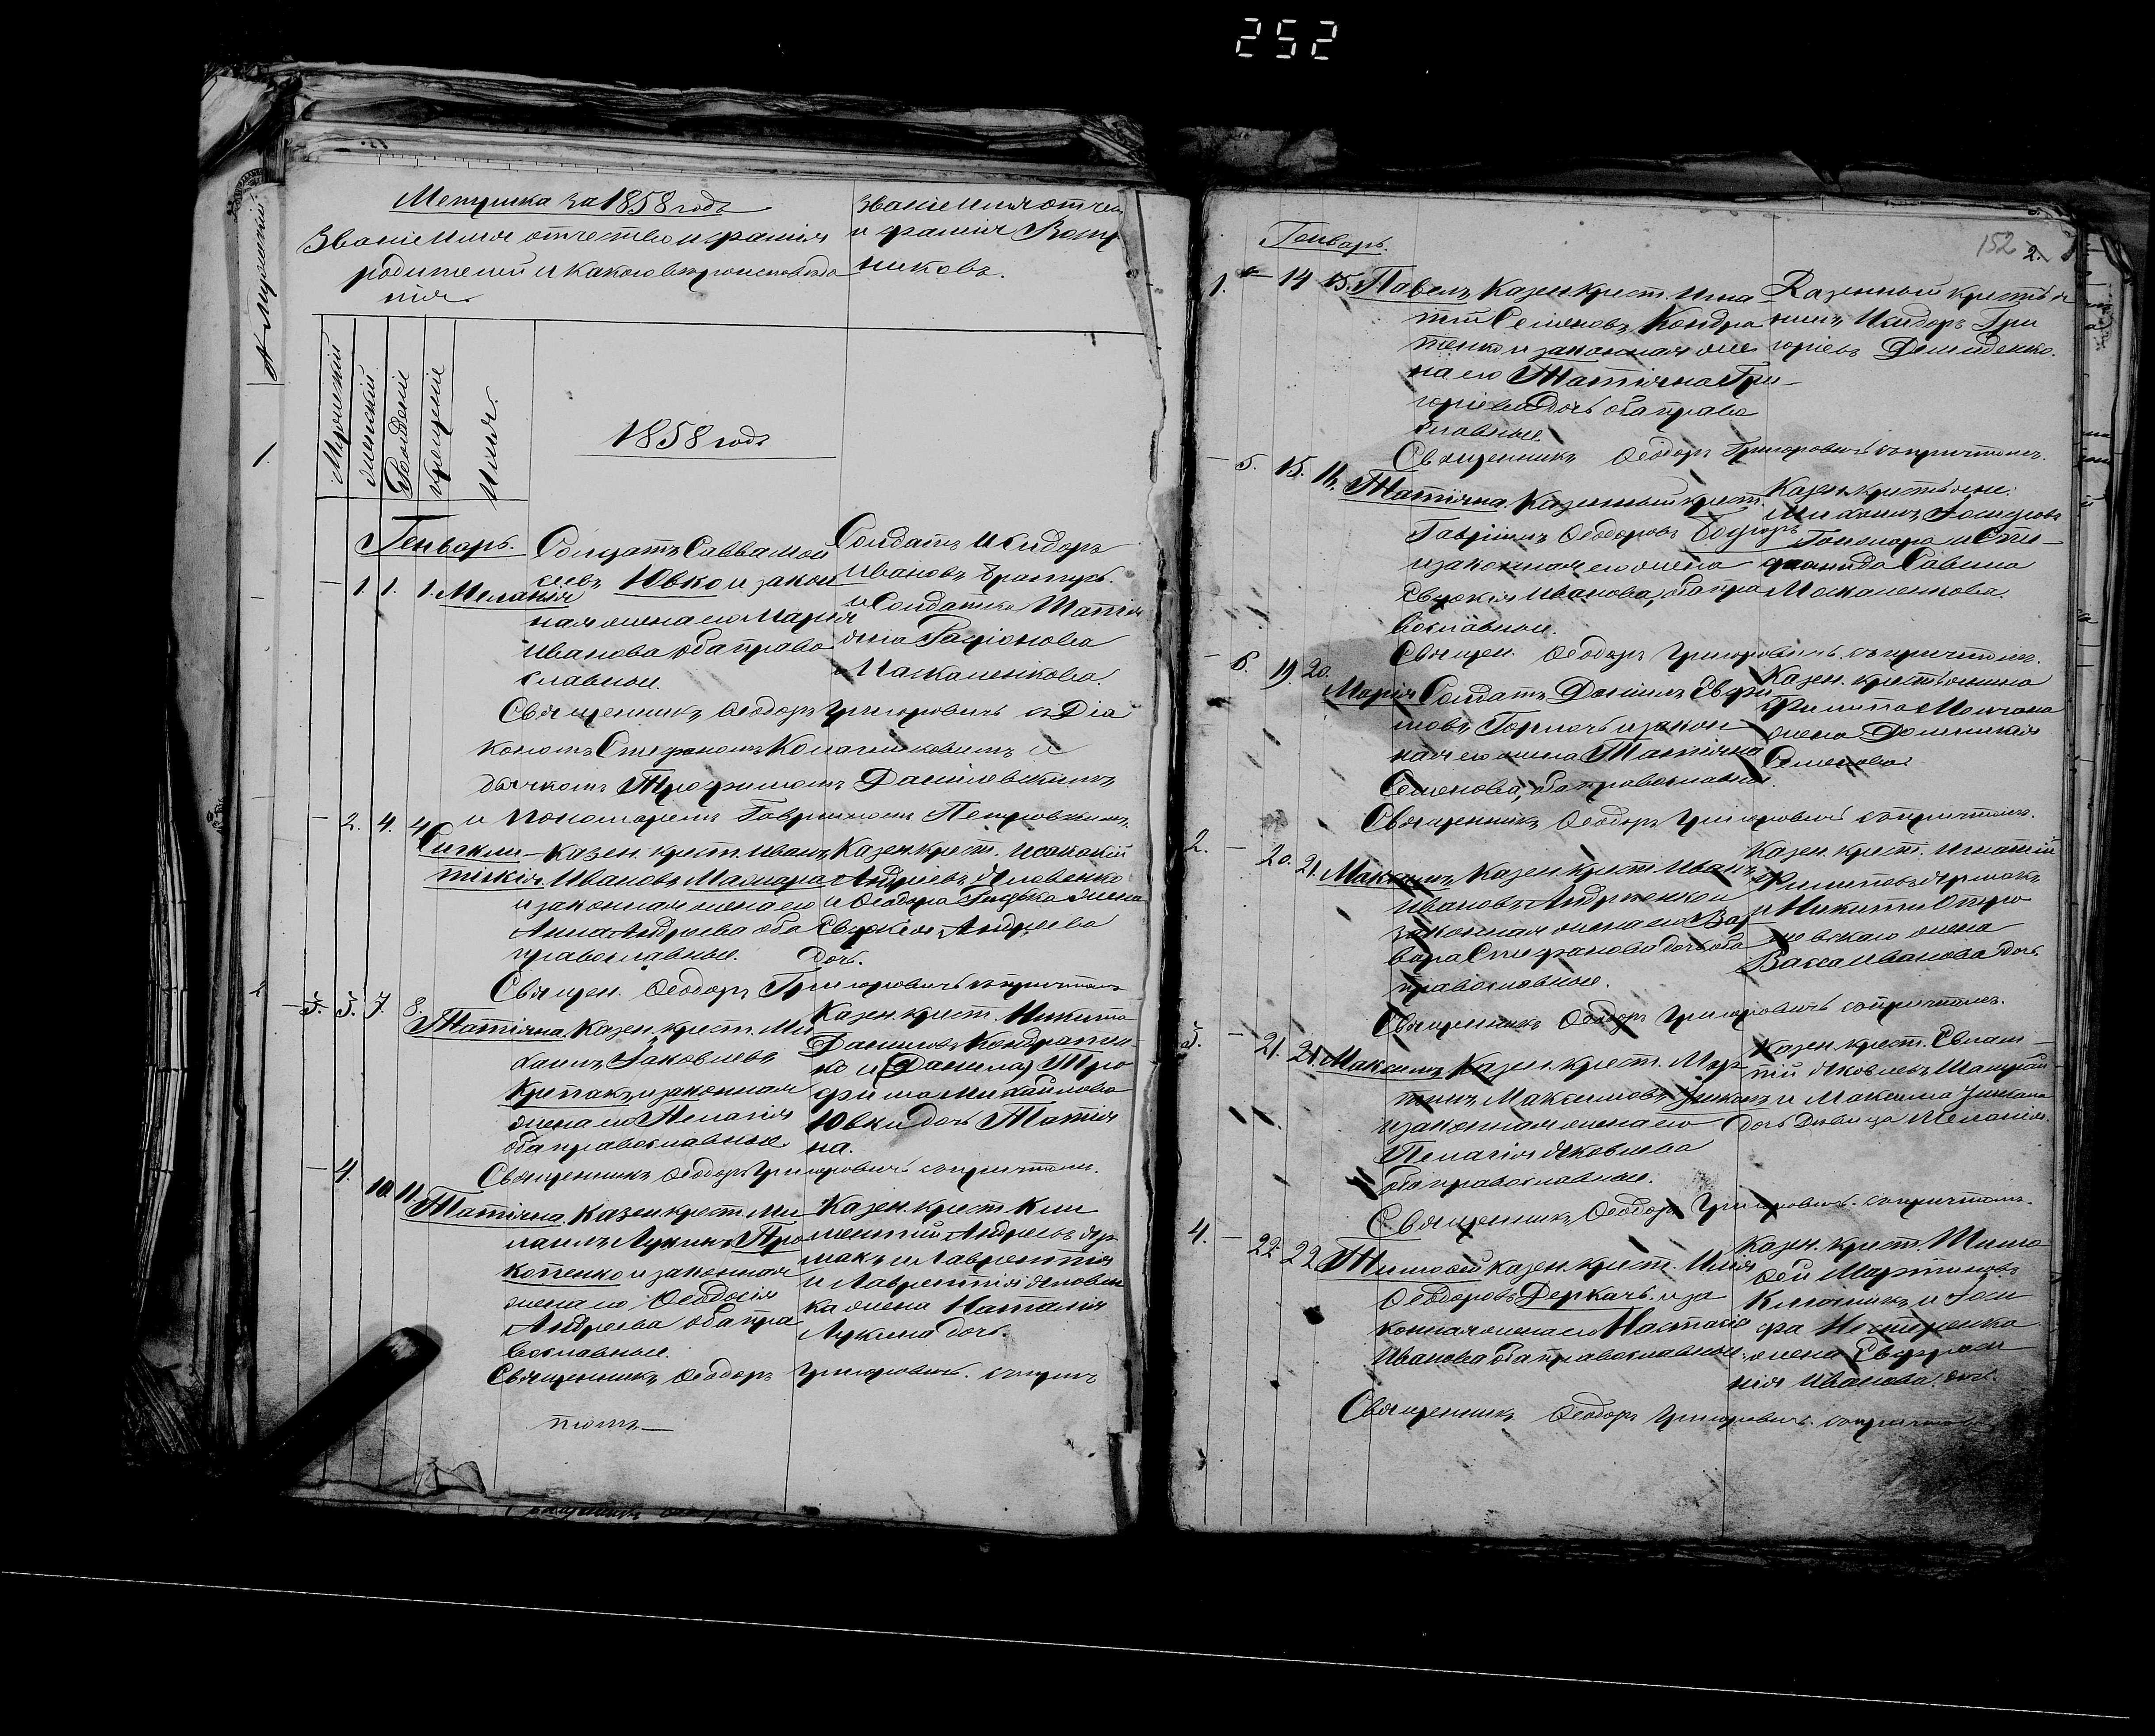 252
Метрика за 1858 годъ
Званіе имя отчество и фамилія
родителей и какого вѣроисповѣда
нія.
званіе имя отчес
и фамилія Воспр
никовъ.
Мужескій
женскій
Рожденіе
крещеніе
Имя.
1858 годъ
Генварь.
Солдатъ Савва Мои
сеевъ Ювко и закон
1. 1. 1. Меланія
ная жена его Марія
Иванова оба право
славные.
Солдатъ Исидоръ
Ивановъ
и Солдатка Татія
на
Москаленкова.
Священникъ Ѳеодоръ Григоровичъ съ Діа
кономъ Стефаномъ и
дьячкомъ Трофимомъ Данілевскимъ,
и Пономаремъ Гавріиломъ Петровскимъ.
2. 4. 4.
Синкли-
тикія
Казен. крест. Иванъ
Ивановъ
и законная жена его
Анна Андреева оба
православные.
Казен. крест.
Андреевъ Яковенко
и Ѳеодора жена
Евдокія Андреева
дочь.
Священ. Ѳеодоръ Григоровичъ съ причтомъ
3. 7. 8.
Татіяна. Казен. крест. Ми
хаилъ Іаковлевъ
Крепакъ и законная
жена его Пелагія
оба православные.
Казен. крест. Никита
Даниловъ Кондратен-
ко и (Данила) Тро
фима Михайлова
Ювки дочь Татія
на.
Священникъ Ѳеодоръ Григоровичъ съ причтомъ.
4. 10. 11.
Татіяна. Казен. крест. Ми
хаилъ Лукинъ Про
копенко и законная
жена его Ѳеодосія
Андреева оба пра
вославные.
Казен. крест. Кли
ментій Андреевъ Яр
макъ и Лаврентія
и Лаврентія Яковен
ка жена Наталія
Лукина дочь.
Священникъ Ѳеодоръ Григоровичъ. съ прич
томъ.—
Генварь.
152 2.
1. — 14 15. Павелъ Казен. крест. Игна
тій Семеновъ Кондра
тенко и законная же
на его Татіяна Гри-
горіева дочь оба право
славные.
Казенный крестья
нинъ Исидоръ Гри
горіевъ Демиденко.
Священникъ Ѳеодоръ Григоровичъ съ причтомъ.
— 5. 15. 16. Татіяна. Казенный крест.
Гавріилъ Ѳеодоровъ
и законная его жена
Евдокія Иванова, оба пра
вославные.
Казен. крестьяне:
Михаилъ Іосифовъ
Гончара и Сте-
фанида Савина
Москаленкова.
Священ. Ѳеодоръ Григоровичъ. съ причтомъ.
— 6. 19. 20.
Марія Солдатъ Даніилъ Евфи
мовъ и закон-
ная его жена Татіяна
Семенова, оба православные.
Казен. крестьянина
Филиппа Молчана
жена Домникія
Семенова.
Священникъ Ѳеодоръ Григоровичъ съ причтомъ.
2. — 20. 21. Максимъ Казен. крест. Иванъ
Ивановъ Андрѣенко и
законная жена его Вар-
вара Стефанова дочь оба
православные.
Казен. крест. Игнатій
Филиповъ Ярмакъ
и Никиты Остро
жевскаго жена
Васса Иванова дочь
Священникъ Ѳеодоръ Григоровичъ съ причтомъ.
3. — 21. 21. Максимъ Казен. крест. Мар-
тинъ Максимовъ
и законная жена его
Пелагія Яковлева
оба православные.
Казен. крест. Евлам-
пій Яковлевъ
и Максима
дочь Девица Меланія.
Священникъ Ѳеодоръ Григоровичъ. съ причтомъ.
4. — 22. 22 Тимоѳей казен. крест. Илія
Ѳеодоровъ Деркачъ. и за
конная жена его Настасія
Иванова оба православные.
Казен. крест. Тимо
ѳей Мартиновъ
Ключникъ и Іоси
фа Нестеренка
жена Евфроси
нія Иванова дочь.
Священникъ Ѳеодоръ Григоровичъ. съ причтомъ